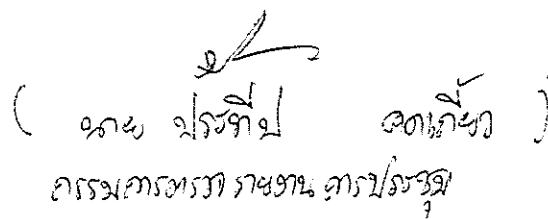 ( นาย ประทีป )
กรรมการตรวจรายงานการประชุม